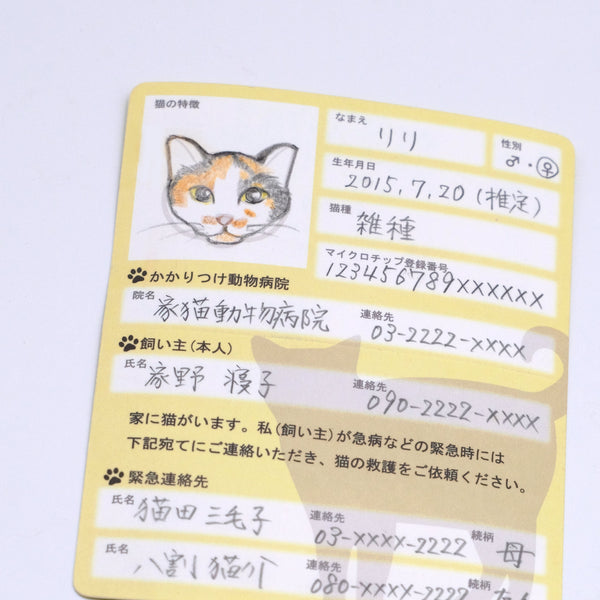 猫の特徴
なまえ
リリ
性別
♂・♀
生年月日
2015.7.20(推定)
猫種
雑種
マイクロチップ登録番号
123456789xxxxxx
かかりつけ動物病院
院名
家猫動物病院
連絡先
03-2222-xxxx
飼い主(本人)
氏名
家野 寝子
連絡先
090-2222-xxxx
家に猫がいます。私(飼い主)が急病などの緊急時には
下記宛てにご連絡いただき、猫の救護をご依頼ください。
緊急連絡先
氏名
猫田三毛子
連絡先
03-xxxx-2222
続柄
母
氏名
八割猫介
連絡先
080-xxxx-2222
続柄